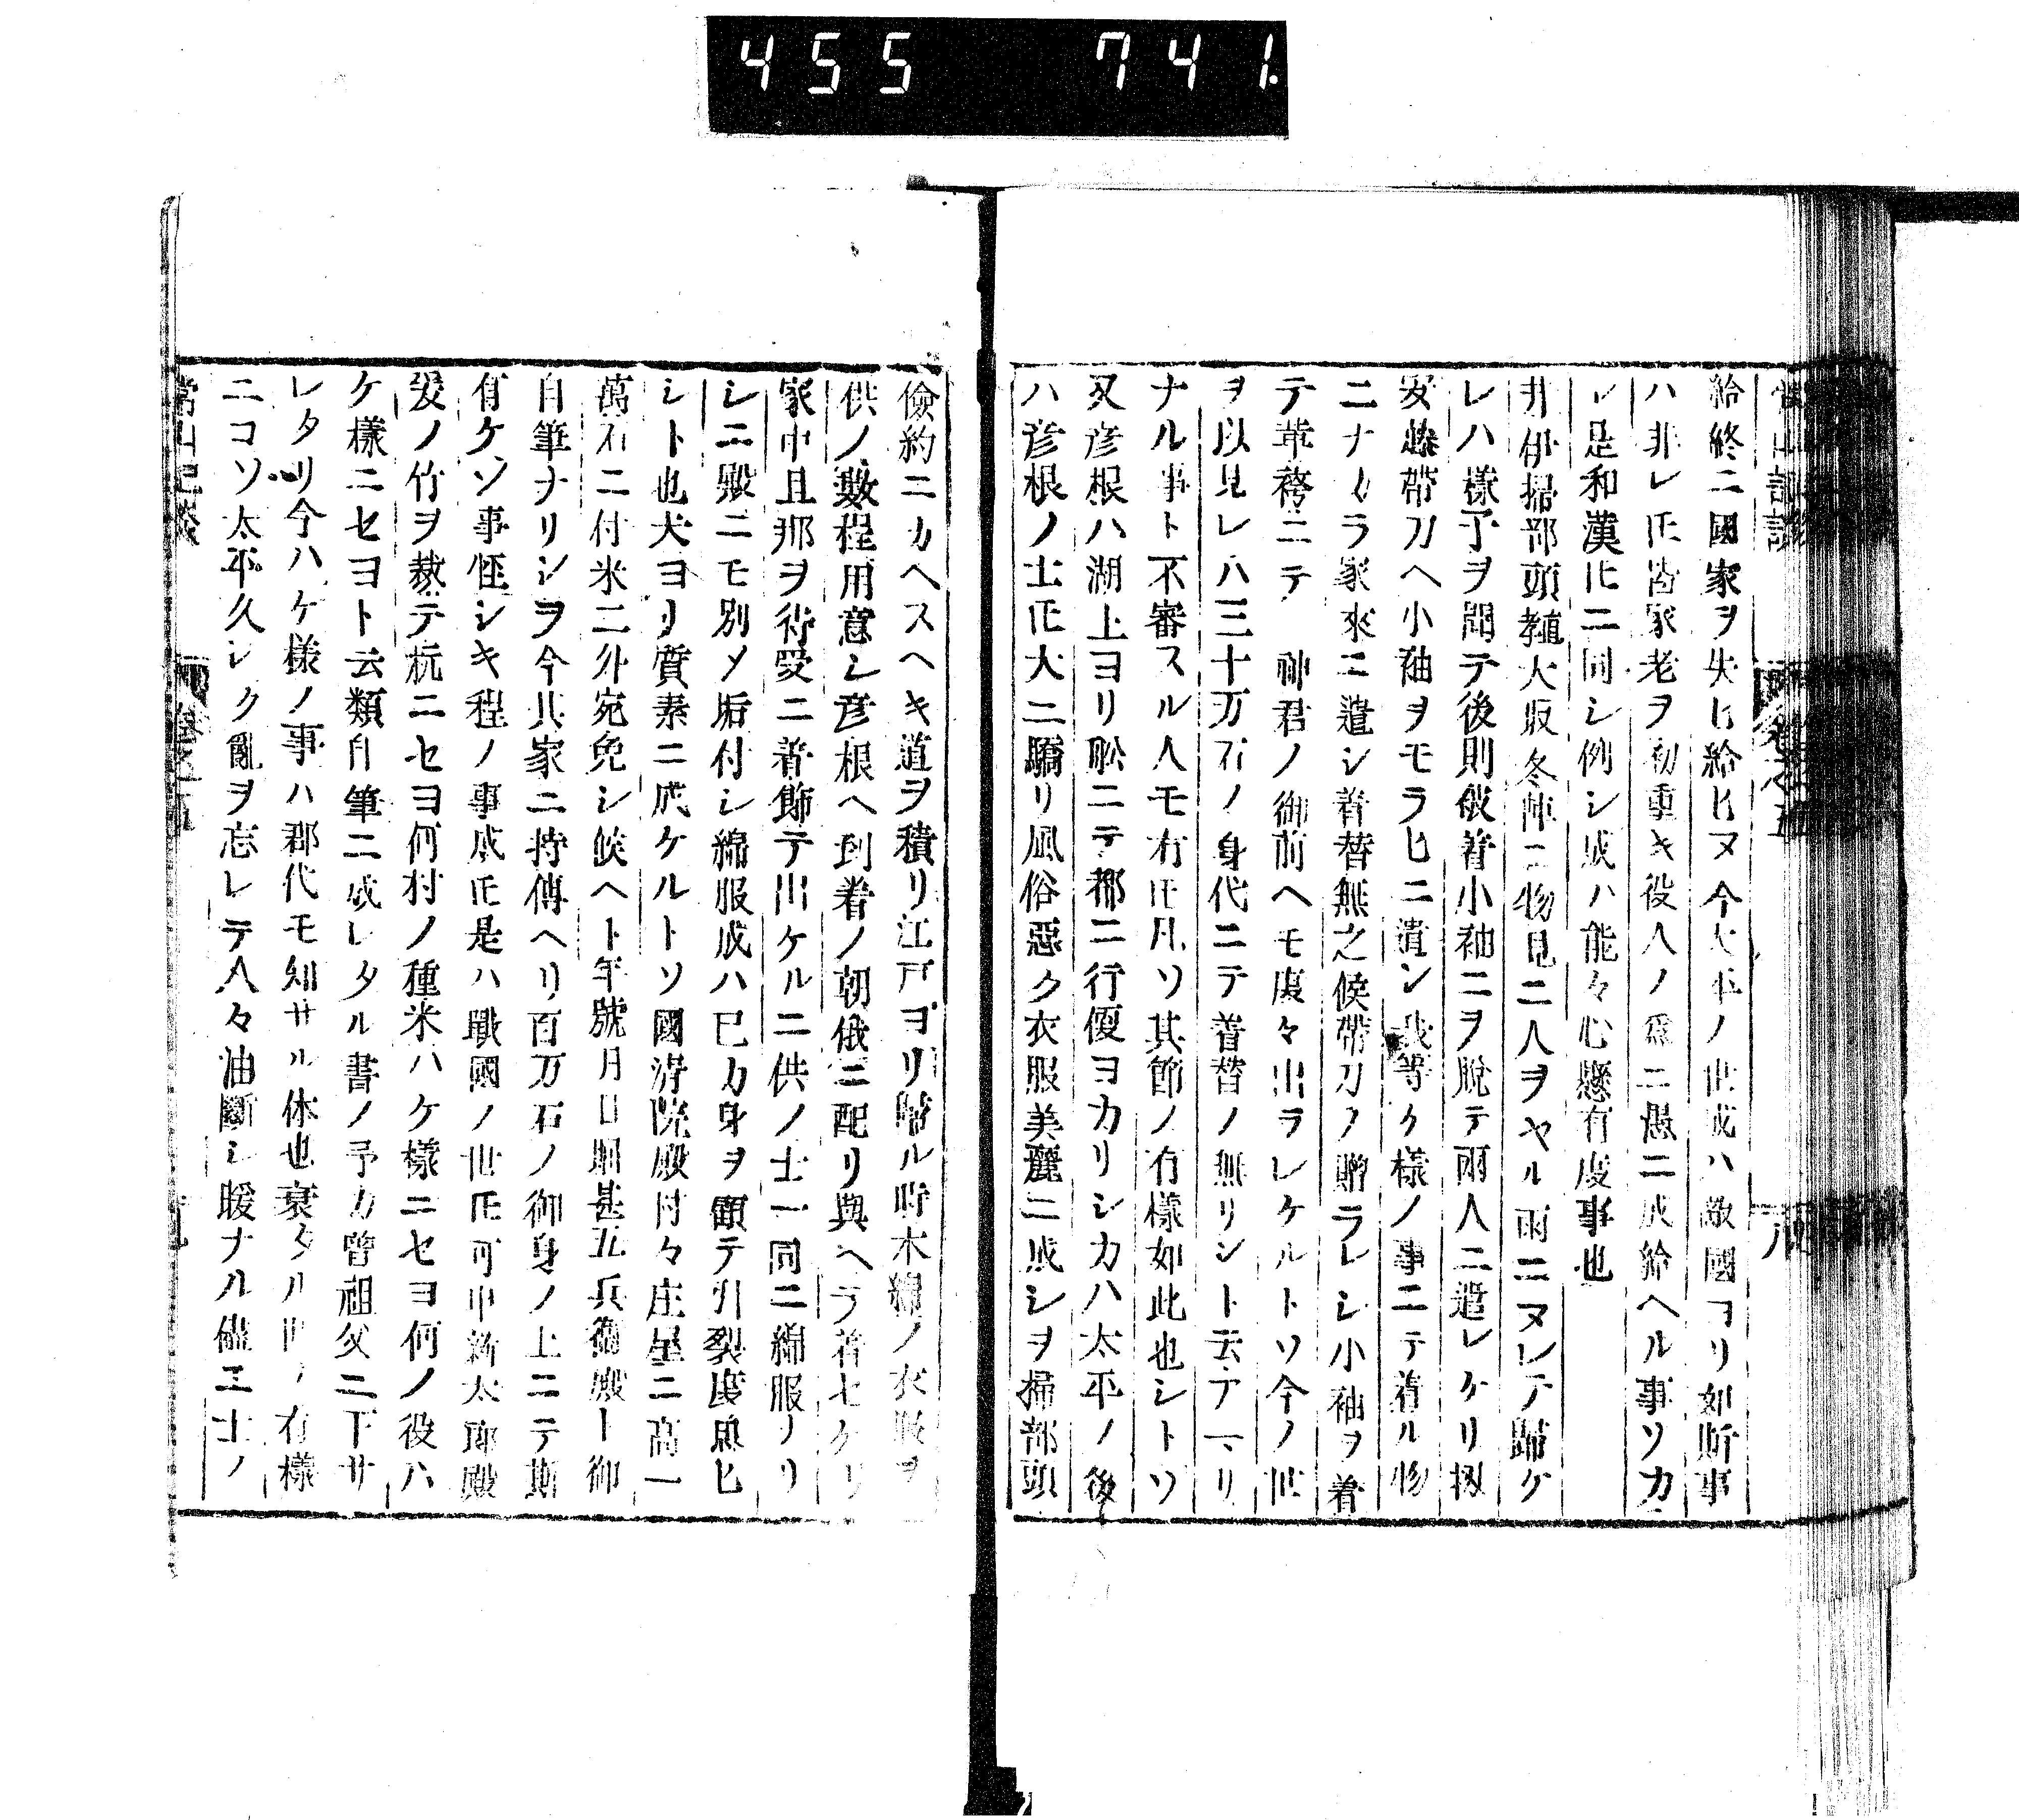 455 741
常山記談
卷之五
八
給終ニ國家ヲ失ヒ給ヒヌ今太平ノ世或ハ敵國ヨリ如斯事
ハ非レ𪜈皆家老ヲ初重キ役人ノ爲ニ愚ニ成給ヘル事ソカ
レ是和漢𪜈ニ同シ例シ成ハ能々心懸有度事也
井伊掃部頭直孝大坂冬陣ニ物見ニ人ヲヤル雨ニヌレテ歸ケ
レハ樣子ヲ聞テ後則我着小袖二ヲ脫テ兩人ニ遣レケリ扨
安藤帶刀ヘ小袖ヲモラヒニ遣シ我等ケ樣ノ事ニテ着ル物
ニナカラ家來ニ遣シ着替無之候帶刀ノ贈ラレシ小袖ヲ着
テ革袴ニテ 神君ノ御前ヘモ度々出ラレケルトソ今ノ世
ヲ以見レハ三十万石ノ身代ニテ着替ノ無リシト云テハ
ナル事ト不審スル人モ有𪜈凡ソ其節ノ有樣如此也シトソ
又彦根ハ湖上ヨリ舩ニテ都ニ行便ヨカリシカハ太平ノ後
ハ彦根ノ士𪜈大ニ驕リ風俗惡ク衣服美麗ニ成シヲ掃部頭
儉約ニカヘスヘキ道ヲ積リ江戸ヨリ歸ル時木綿ノ衣服ヲ
供ノ數程用意シ彦根ヘ到着ノ朝俄ニ配リ與ヘテ着セケリ
家中旦那ヲ待受ニ着飾テ出ケルニ供ノ士一同ニ綿服ナリ
シニ殿ニモ別メ垢付シ綿服成ハ已カ身ヲ顧テ引裂度思ヒ
シト也夫ヨリ質素ニ成ケルトソ國淸院殿村々庄屋ニ高一
萬石ニ付米二升宛免シ候ヘト年號月日堀甚五兵衞殿ト御
自筆ナリシヲ今其家ニ持傳ヘリ百万石ノ御身ノ上ニテ斯
有ケン事怪シキ程ノ事成𪜈是ハ戰國ノ世𪜈可申新太郎殿
爰ノ竹ヲ裁テ杭ニセヨ何村ノ種米ハケ樣ニセヨ何ノ役ハ
ケ樣ニセヨト云類自筆ニ成レタル書ノ予カ曾祖父ニ下サ
レタリ今ハケ樣ノ事ハ郡代モ知サル休也衰タル世ノ有樣
ニコソ太平久シク亂ヲ忘レテ人々油斷シ暖ナル儘ニ士ノ
常山記談
卷之五